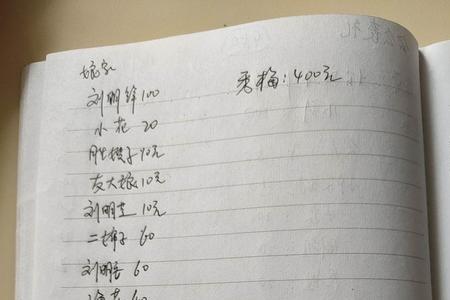 娘家
刘明锋100 秀梅：400元
小花 20
胜嫂子10元
友大娘10元
刘明芝 10元
二婶子 60
刘明 60